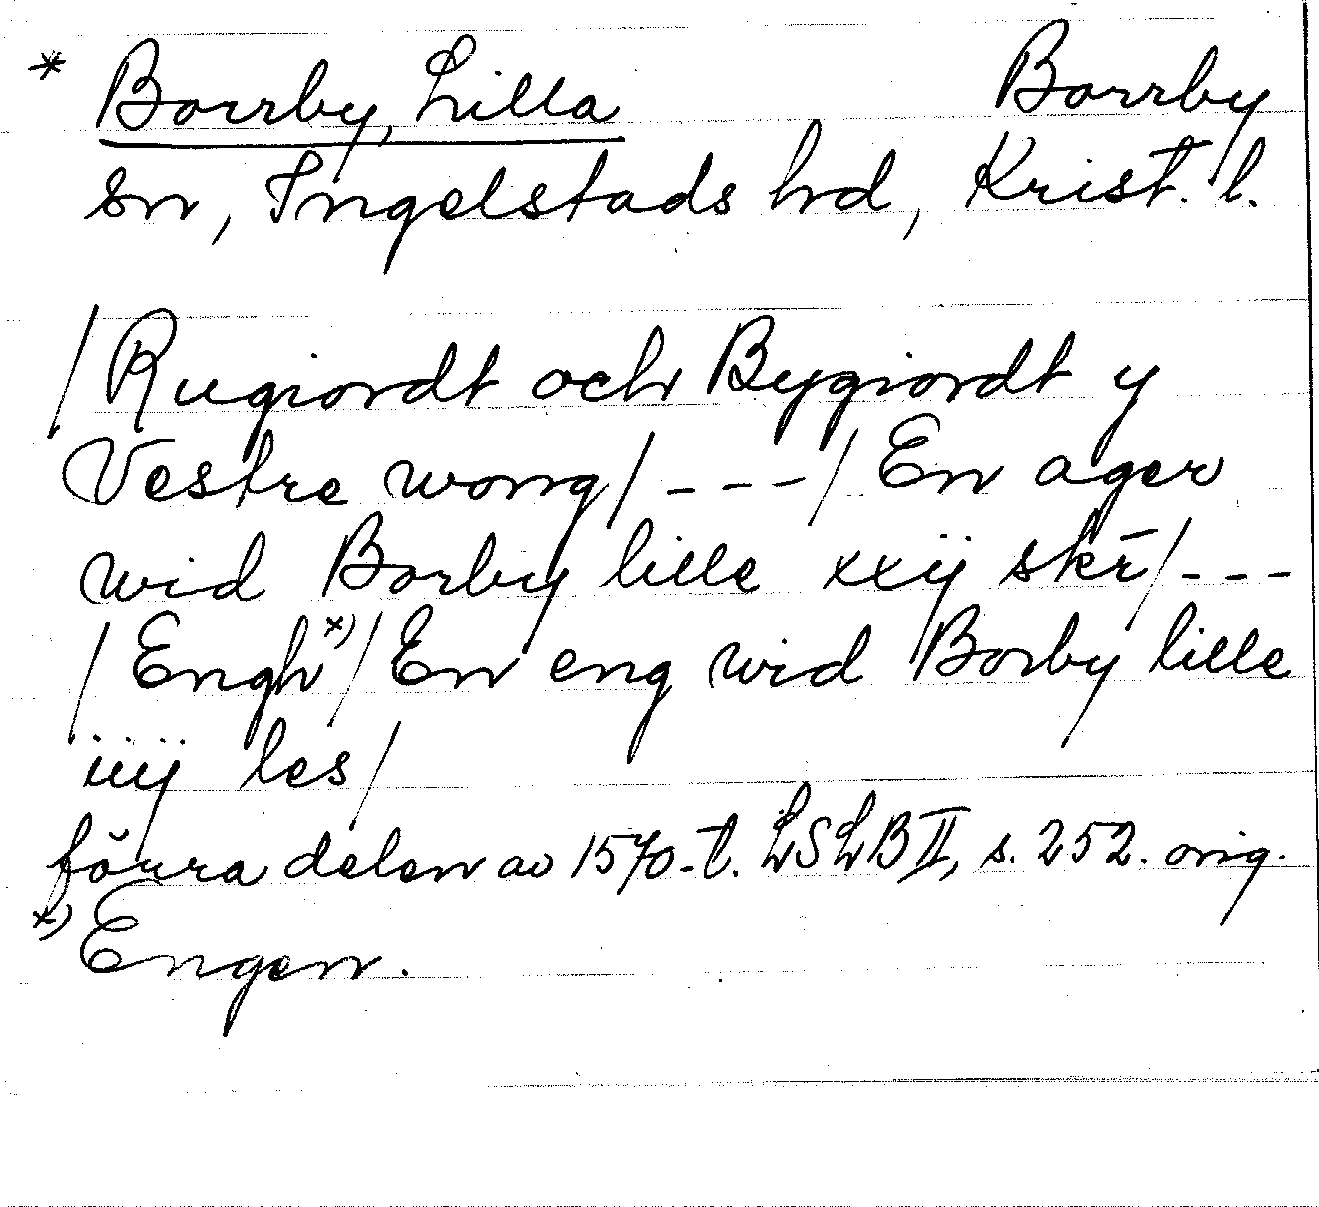 * Borrby, Lilla Borrby
sn, Ingelstads hd, Krist. l.
/Rugiordt och Bygiordt y
Vestre wong/ - - - / En ager
wid Borby lille xxij skr̄/ - - -
/Engh x)/ En eng wid Borby lille
iiij les/
förra delen av 1570-t. LSLB II, s. 252. orig.
x) Engen.